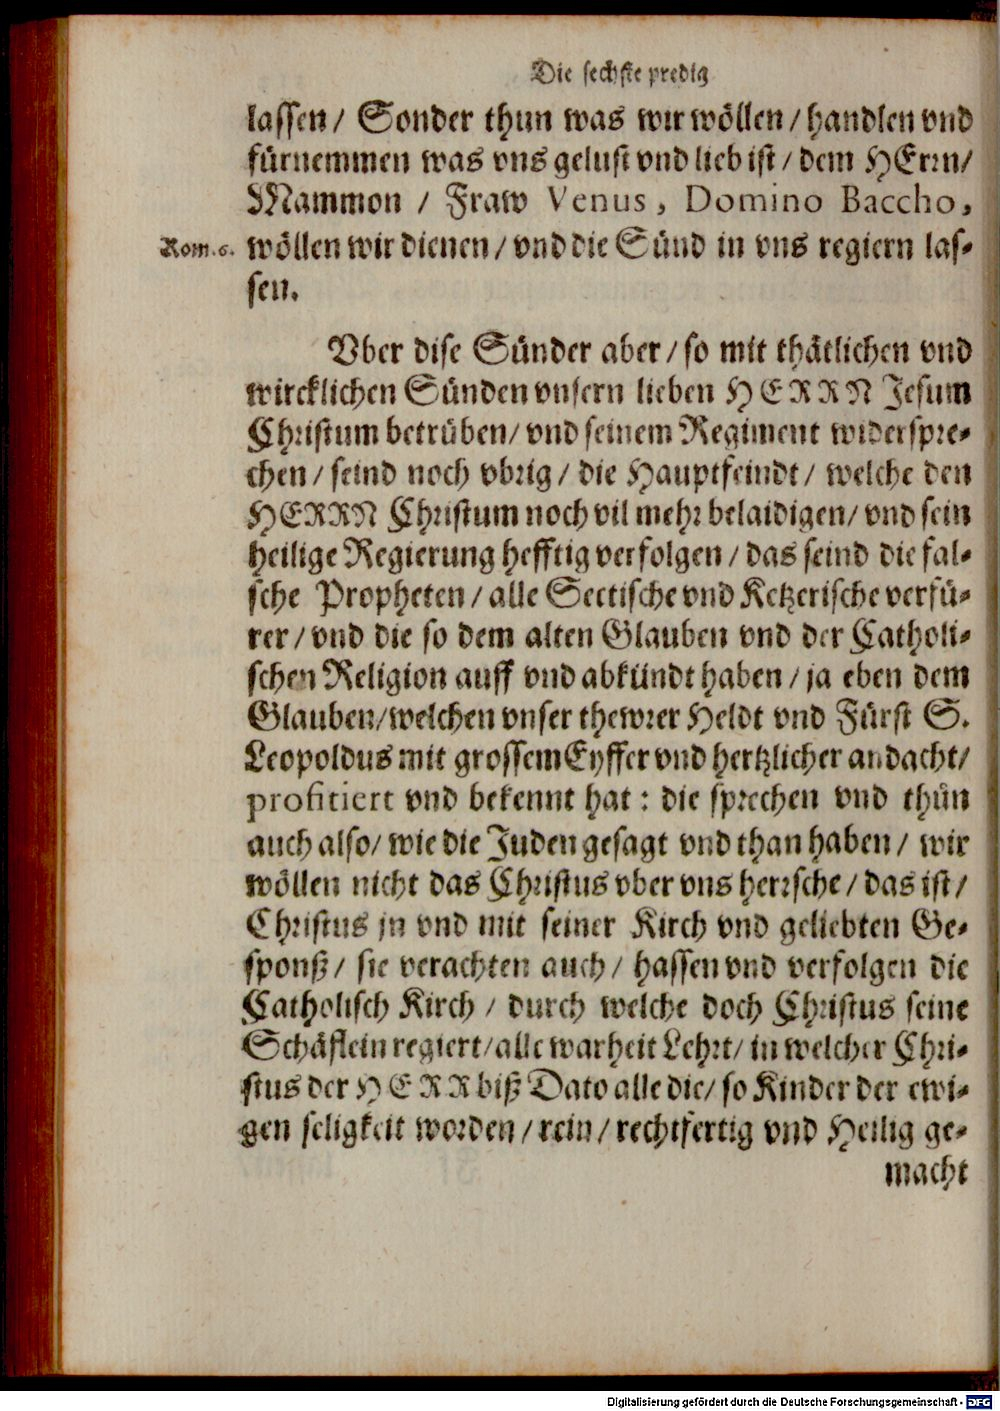 Die sechste predig
lassen / Sonder thun was wir wöllen / handlen vnd
fürnemmen was vns gelust vnd lieb ist / dem HErrn /
Mammon / Fraw Venus, Domino Baccho,
Rom. 6. wöllen wir dienen / vnd die Sünd in vns regiern las-
sen.
Vber dise Sünder aber / so mit thätlichen vnd
wircklichen Sünden vnsern lieben HERRN Jesum
Christum betrüben / vnd seinem Regiment widerspre-
chen / seind noch vbrig / die Hauptfeindt / welche den
HERRN Christum noch vil mehr belaidigen / vnd sein
heilige Regierung hefftig verfolgen / das seind die fal-
sche Propheten / alle Sectische vnd Ketzerische verfü-
rer / vnd die so dem alten Glauben vnd der Catholi-
schen Religion auff vnd abkündt haben / ja eben dem
Glauben / welchen vnser thewrer Heldt vnd Fürst S.
Leopoldus mit grossem Eyffer vnd hertzlicher andacht /
profitiert vnd bekennt hat : die sprechen vnd thůn
auch also / wie die Juden gesagt vnd than haben / wir
wöllen nicht das Christus vber vns herrsche / das ist /
Christus jn vnd mit seiner Kirch vnd geliebten Ge-
sponß / sie verachten auch / hassen vnd verfolgen die
Catholisch Kirch / durch welche doch Christus seine
Schäflein regiert / alle warheit Lehrt / in welcher Chri-
stus der HERR biß Dato alle die / so Kinder der ewi-
gen seligkeit worden / rein / rechtfertig vnd Heilig ge-
macht
Digitalisierung gefördert durch die Deutsche Forschungsgemeinschaft - DFG